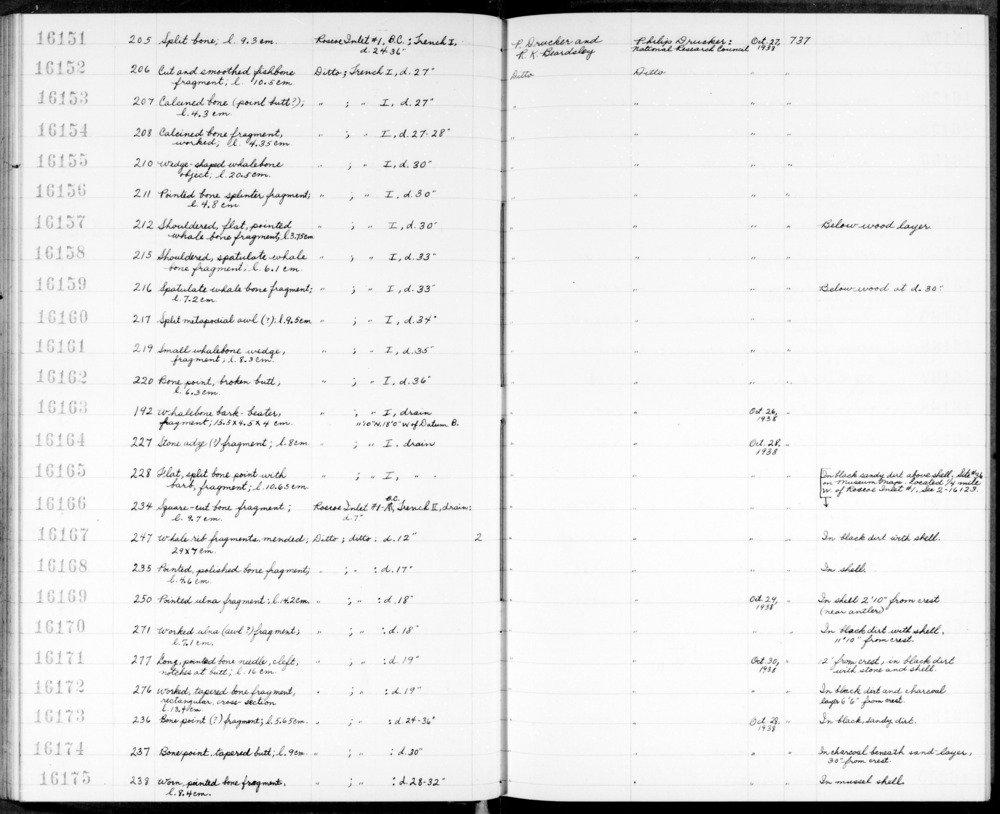 16151 205 Split bone; l. 9.3 cm. Roscoe Inlet #1, B.C.; Trench I, P. Drucker and Philip Drucker: Oct. 27, 737
d. 24-36" R. K. Beardsley National Research Council 1938
16152 206 Cut and smoothed fishbone Ditto; Trench I, d. 27" Ditto Ditto " "
fragment; l. 10.5 cm.
16153 207 Calcined bone (point butt?); " ; " I, d. 27" " " " "
l. 4.3 cm.
16154 208 Calcined bone fragment, " ; " I, d. 27-28" " " " "
worked; l. 4.35 cm.
16155 210 Wedge-shaped whalebone " ; " I, d. 30" " " " "
object; l. 20.5 cm.
16156 211 Pointed bone splinter fragment; " ; " I, d. 30" " " " "
l. 4.8 cm.
16157 212 Shouldered, flat, pointed " ; " I, d. 30" " " " " Below wood layer
whale bone fragment; l. 3.75 cm
16158 215 Shouldered, spatulate whale " ; " I, d. 33" " " " "
bone fragment; l. 6.1 cm.
16159 216 Spatulate whale bone fragment; " ; " I, d. 33" " " " " Below wood at d. 30"
l. 7.2 cm.
16160 217 Split metapodial awl (?); l. 9.5 cm. " ; " I, d. 34" " " " "
16161 219 Small whalebone wedge, " ; " I, d. 35" " " " "
fragment; l. 8.3 cm.
16162 220 Bone point, broken butt, " ; " I, d. 36" " " " "
l. 6.3 cm.
16163 192 Whalebone bark-beater, " ; " I, drain " " Oct. 26, "
fragment; 15.5 x 9.5 x 4 cm. 11'0"N, 18'0" W of Datum B. 1938
16164 227 Stone adze (?) fragment; l. 8 cm. " ; " I. drain " " Oct. 28, "
1938
16165 228 Flat, split bone point with " ; " I, " " " " " In black sandy dirt above shell. Site #36
barb, fragment; l. 10.65 cm. on Museum Map. Located 1/4 mile
W. of Roscoe Inlet #1. See 2-16123.
16166 234 Square-cut bone fragment; Roscoe Inlet #1-A, B.C., Trench II, drain; " " " "
l. 9.7 cm. d. 7"
16167 247 Whale rib fragments mended; Ditto; ditto: d. 12" 2 " " " " In black dirt with shell.
29 x 7 cm.
16168 235 Pointed, polished bone fragment; " ; " : d. 17" " " " " In shell.
l. 4.6 cm.
16169 250 Pointed ulna fragment; l. 14.2 cm. " ; " : d. 18" " " Oct. 29, " In shell 2'10" from crest
1938 (near antler)
16170 271 Worked ulna (awl?) fragment; " ; " : d. 18" " " " " In black dirt with shell,
l. 7.1 cm. 11'10" from crest.
16171 277 Long, pointed bone needle, cleft, " ; " : d. 19" " " Oct. 30, " 12" from crest, in black dirt
notches at butt; l. 16 cm. 1938 with stone and shell.
16172 276 Worked, tapered bone fragment, " ; " : d. 19" " " " " In black dirt and charcoal
rectangular, cross-section layer 6'6" from crest
l. 13.4 cm.
16173 236 Bone point (?) fragment; l. 5.65 cm. " ; " : d. 24-36" " " Oct. 28, " In black, sandy dirt.
1938
16174 237 Bone point, tapered butt; l. 9 cm. " ; " : d. 30" " " " " In charcoal beneath sand layer,
30" from crest
16175 238 Worn, pointed bone fragment, " ; " : d. 28-32" " " " " In mussel shell.
l. 8.4 cm.